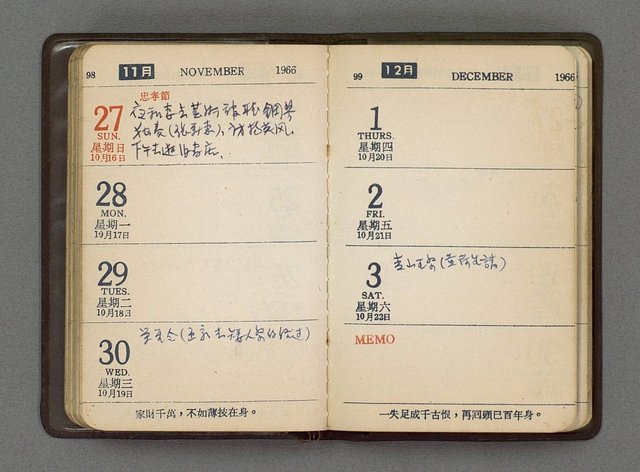 98 11月 NOVEMBER 1966
忠孝節
27
SUN.
星期日
10月16日
下午去逛旧書店.
28
MON.
星期一
19月17日
29
TUES.
星期二
10月18日
30
WED.
星期三
10月19日
家財千萬，不如薄技在身。
99 12月 DECEMBER 1966
1
THURS.
星期四
10月20日
2
FRI.
星期五
10月21日
3
SAT.
星期六
10月22日
MEMO
一失足成千古恨，再回頭已百年身。